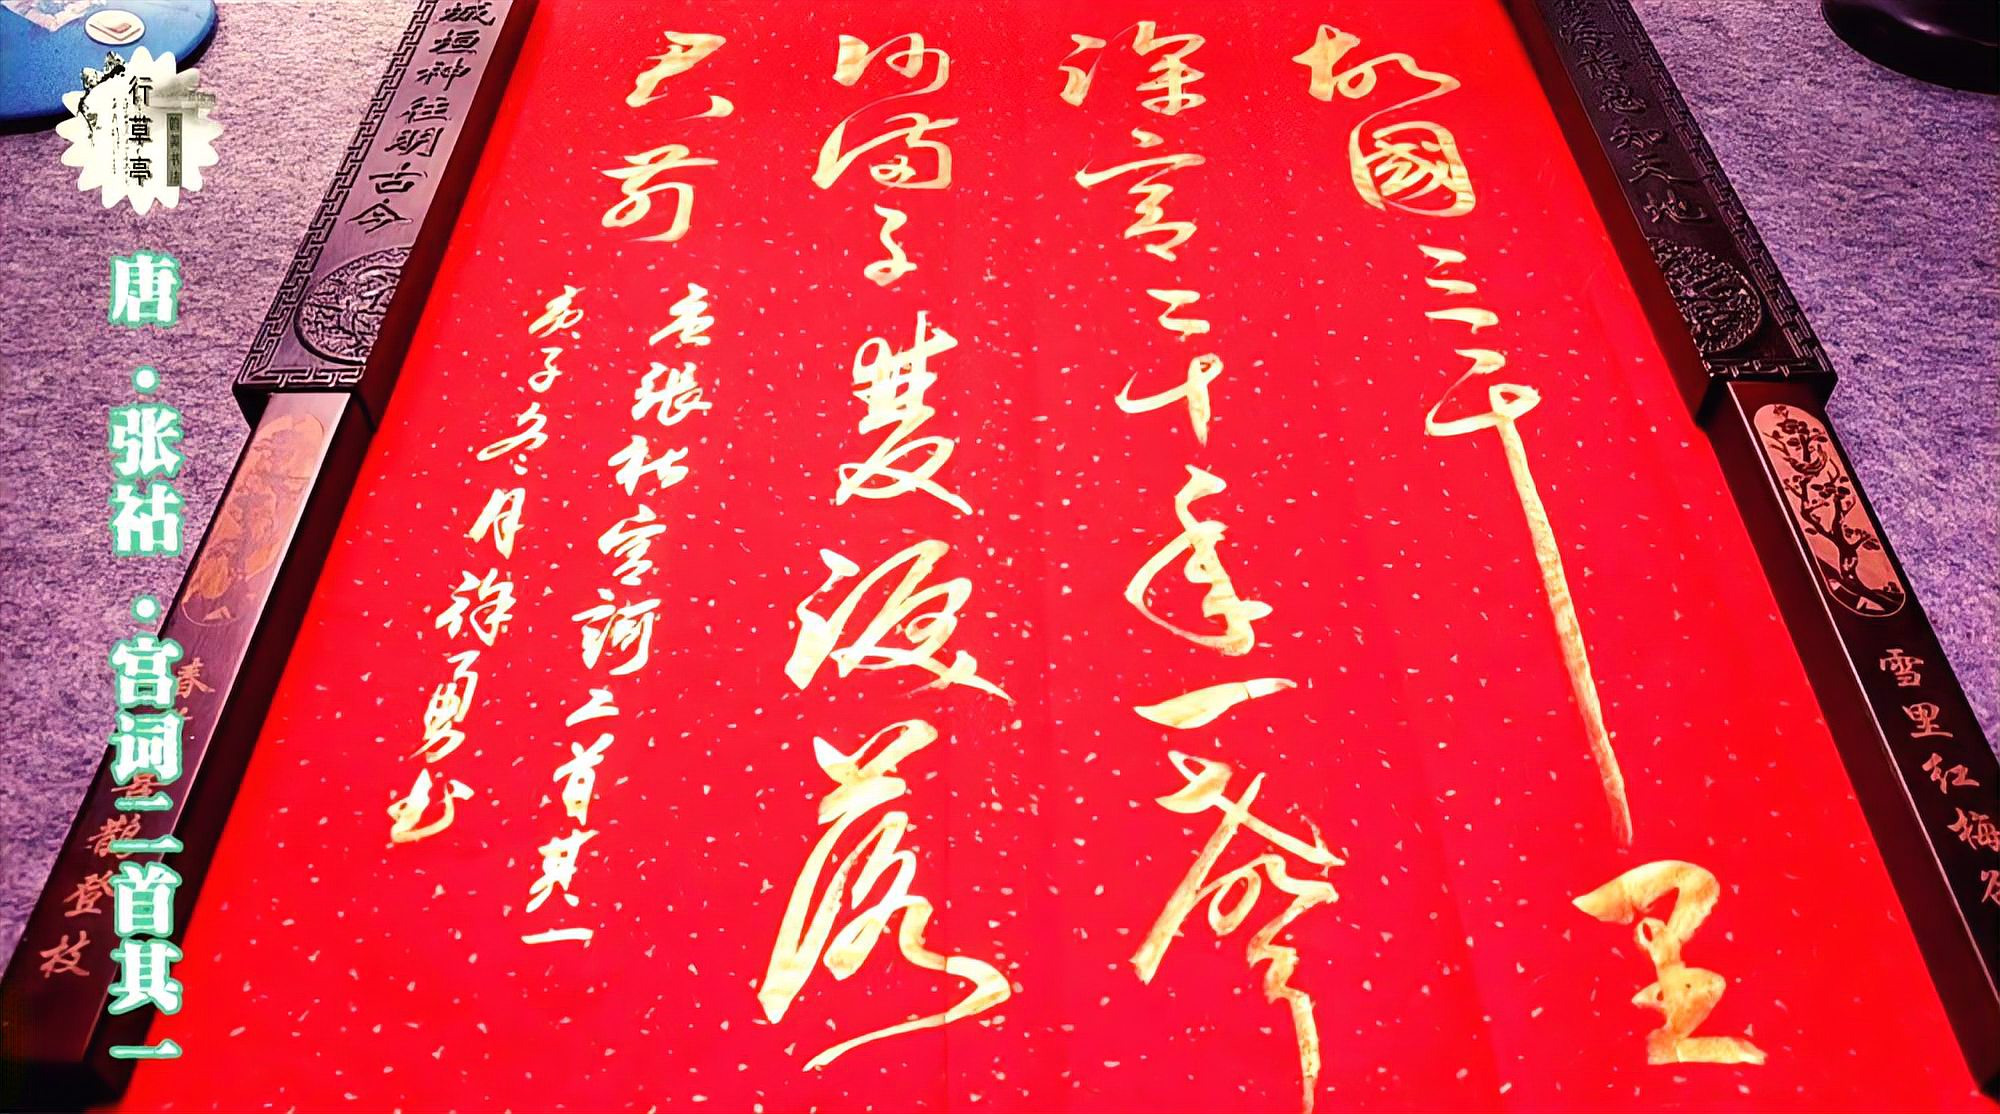 故國三千里
深宫二十年一聲
何满子雙淚落
君前
唐張祜宫詞二首其一
庚子冬月徐勇书
行草亭
唐·张祜·宫词二首其一
城垣神往明古今
登枝
雪里红梅